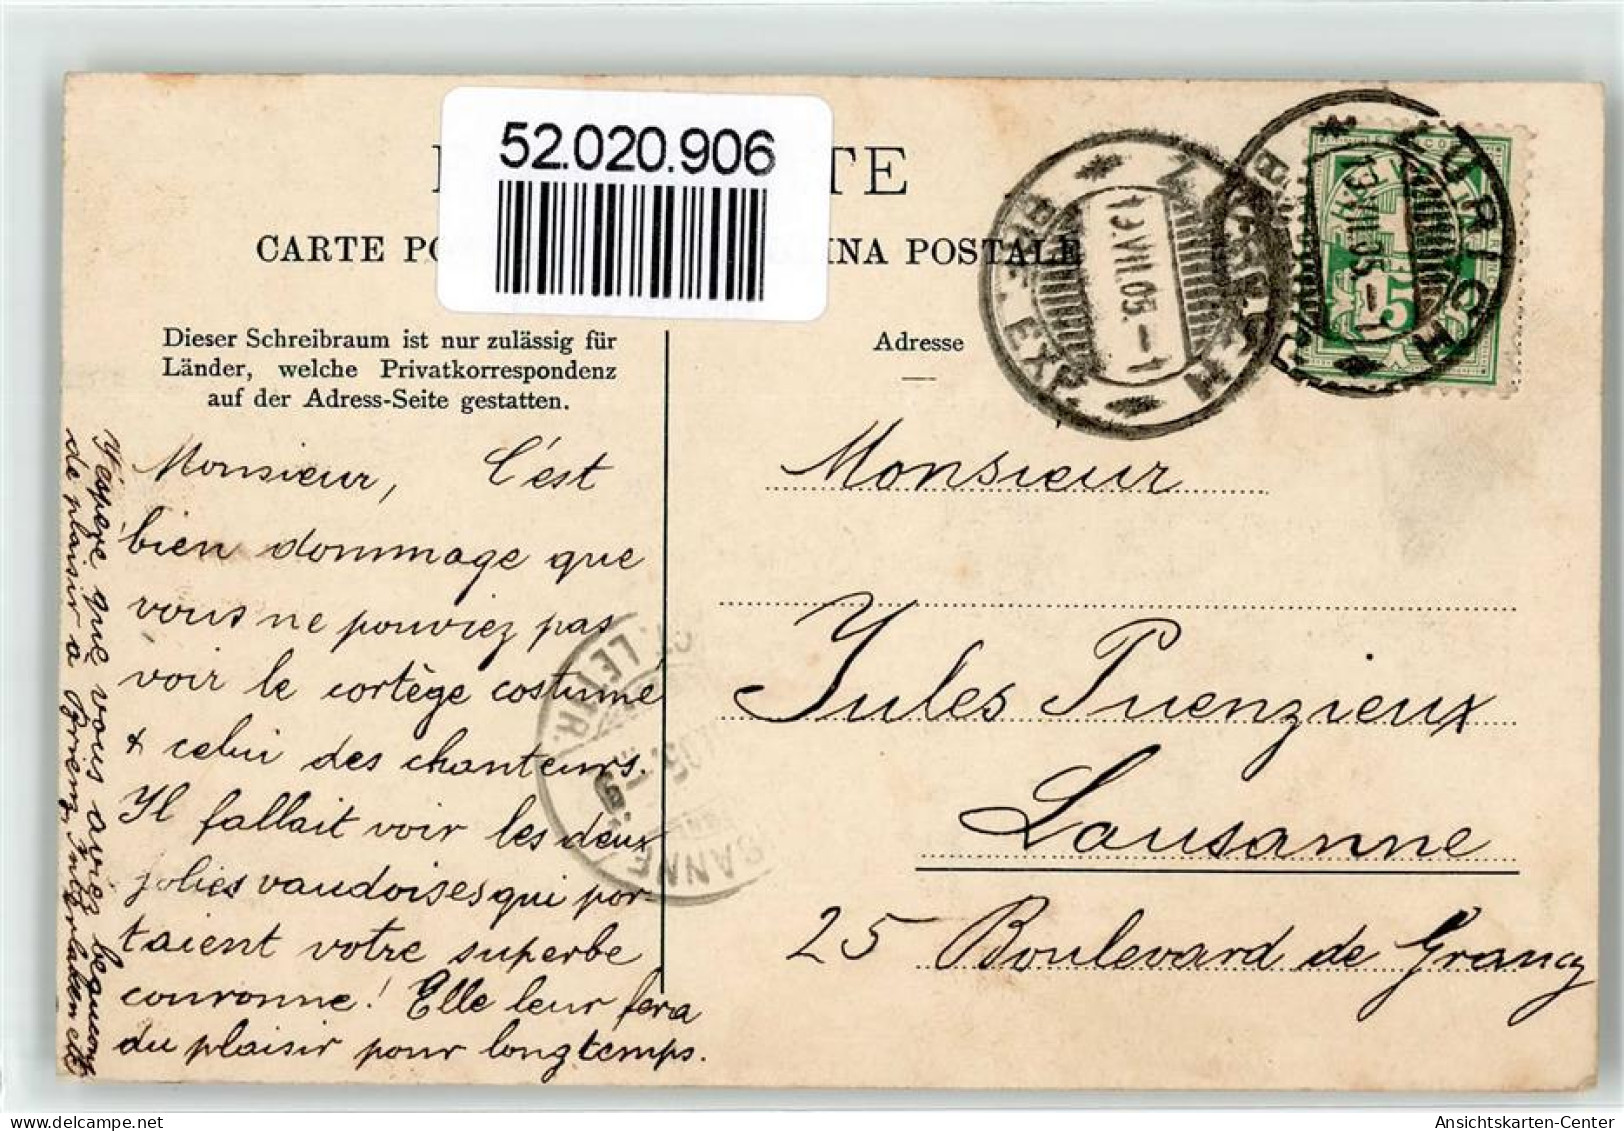 52.020.906
TE
CARTE PO
INA POSTALE
Dieser Schreibraum ist nur zulässig für
Länder, welche Privatkorrespondenz
auf der Adress-Seite gestatten.
Adresse
ZÜRICH
13.VII.05.-1
BRF. EXP.
ZÜRICH
13.VII.05.-1
5
Monsieur, C'est
bien dommage que
vous ne pouviez pas
voir le cortège costumé
& celui des chanteurs.
Il fallait voir les deux
jolies vaudoises qui por-
taient votre superbe
couronne! Elle leur fera
du plaisir pour longtemps.
J'espère que vous avez beaucoup
de plaisir à Brienz, Interlaken etc
LETTR.
Monsieur
Jules Puenzieux
Lausanne
25 Boulevard de Grancy
Ansichtskarten-Center